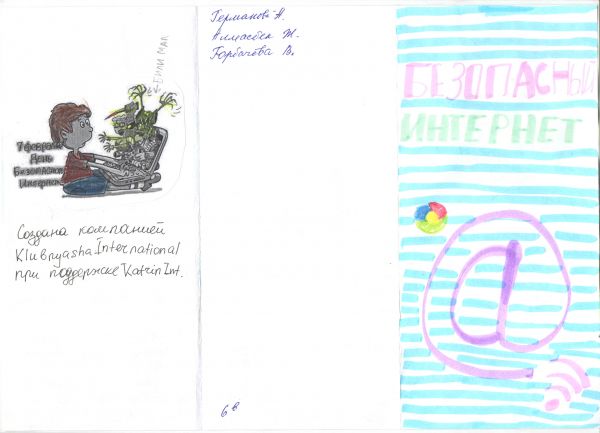 ← БИЛИ МАП
7 февраля
День
Безопасного
Интернета
Создана компанией
Klubnyasha International
при поддержке Katrin Int.
Германова А.
Горбачёва В.
6 в
БЕЗОПАСНЫЙ
ИНТЕРНЕТ
@